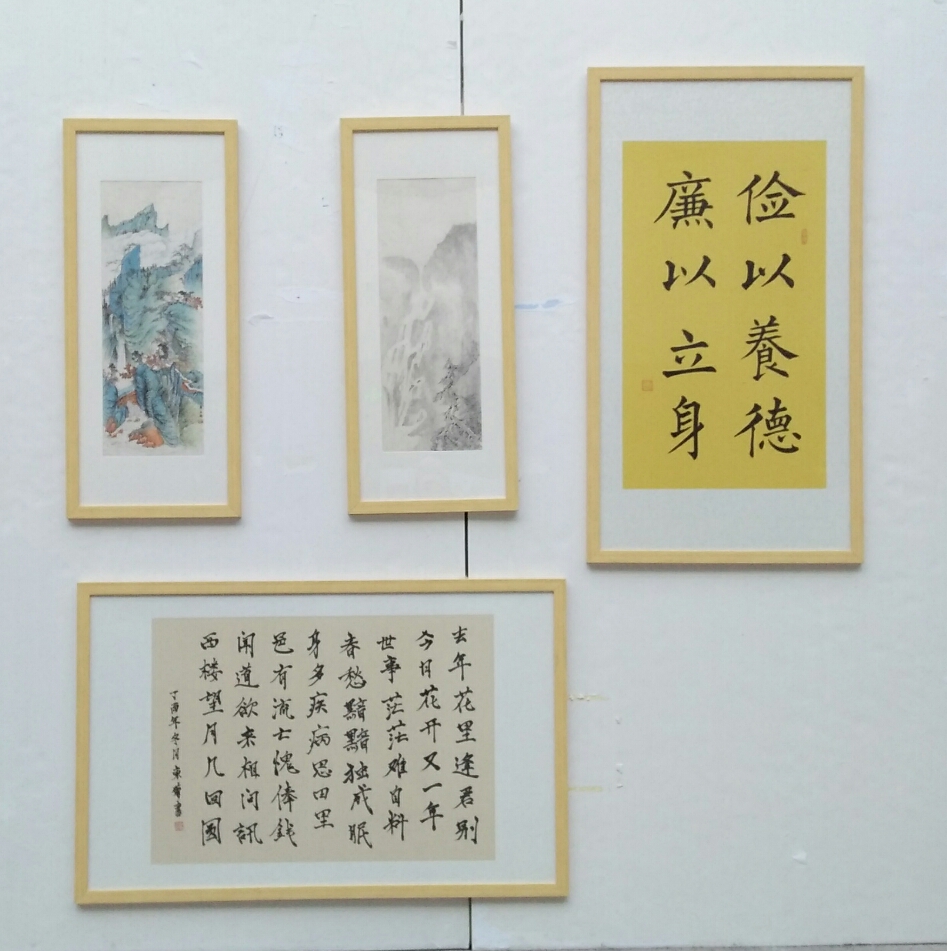 俭以養德
廉以立身
去年花里逢君别
今日花开又一年
世事茫茫难自料
春愁黯黯独成眠
身多疾病思田里
邑有流士愧俸錢
闻道欲来相问訊
西楼望月几回圆
丁酉年冬月